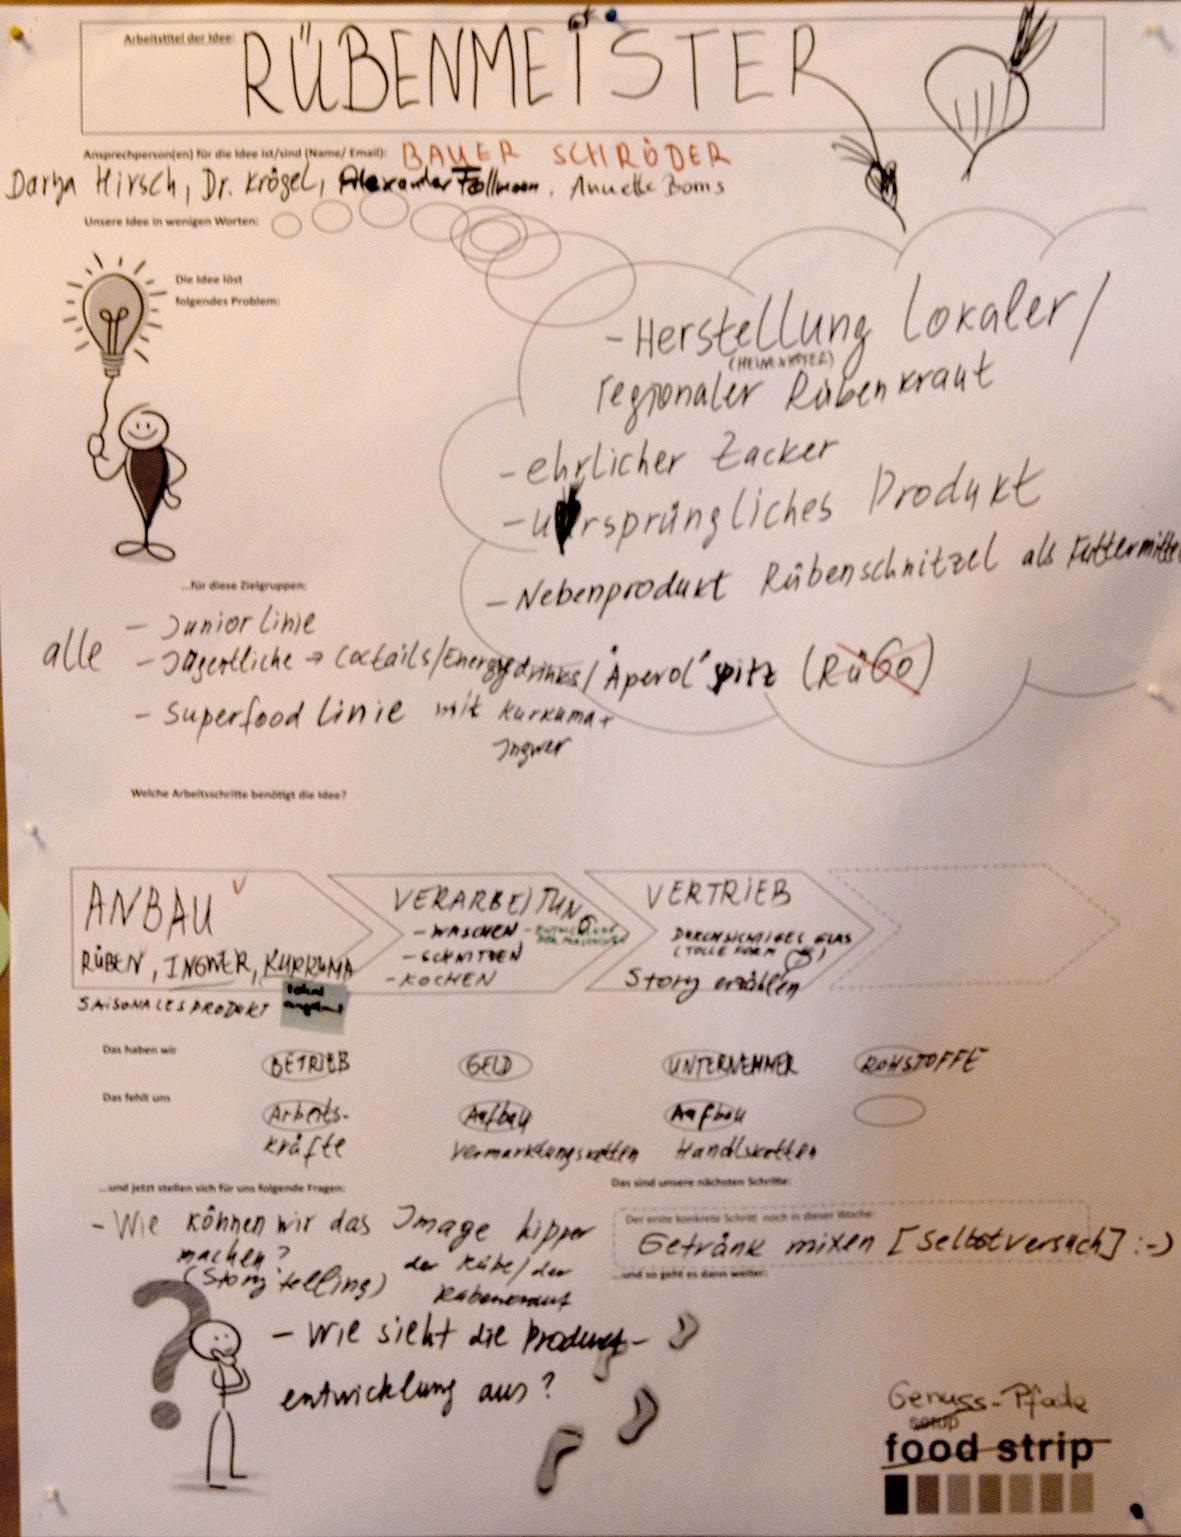 Arbeitstitel der Idee:
RÜBENMEISTER
Ansprechperson(en) für die Idee ist/sind (Name/ Email): BAUER SCHRÖDER
Darya Hirsch, Dr. Krögel, Alexander Follmann, Annette Boms
Unsere Idee in wenigen Worten:
Die Idee löst
folgendes Problem:
- Herstellung lokaler/
regionaler Rübenkraut
- ehrlicher Zacker
- ursprüngliches Produkt
- Nebenprodukt Rübenschnitzel als Futtermittel
...für diese Zielgruppen:
alle
- Junior linie
- Jugentliche → Coctails/Energydrinks/"Aperol" Spitz (RüGo)
- Superfood Linie mit Kurkuma+
Ingwer
Welche Arbeitsschritte benötigt die Idee?
ANBAU
RÜBEN, INGWER, KURKUMA
SAISONALES PRODUKT
VERARBEITUNG
- WASCHEN
- SCHNITZEN
- KOCHEN
VERTRIEB
DURCHSICHTIGES GLAS
(TOLLE FORM)
Story erzählen
Das haben wir
BETRIEB GELD UNTERNEHMER ROHSTOFFE
Das fehlt uns
Arbeits- Aufbau Aufbau
kräfte Vermarktungsketten Handlsketten
...und jetzt stellen sich für uns folgende Fragen:
- Wie können wir das Image hipper
machen? der Rübe/der
(Story telling) Rübenkraut
- Wie sieht die Produkt-
entwicklung aus?
Das sind unsere nächsten Schritte:
Der erste konkrete Schritt noch in dieser Woche:
Getränk mixen [Selbstversuch] :-)
...und so geht es dann weiter:
Genuss-Pfade
setup
food strip